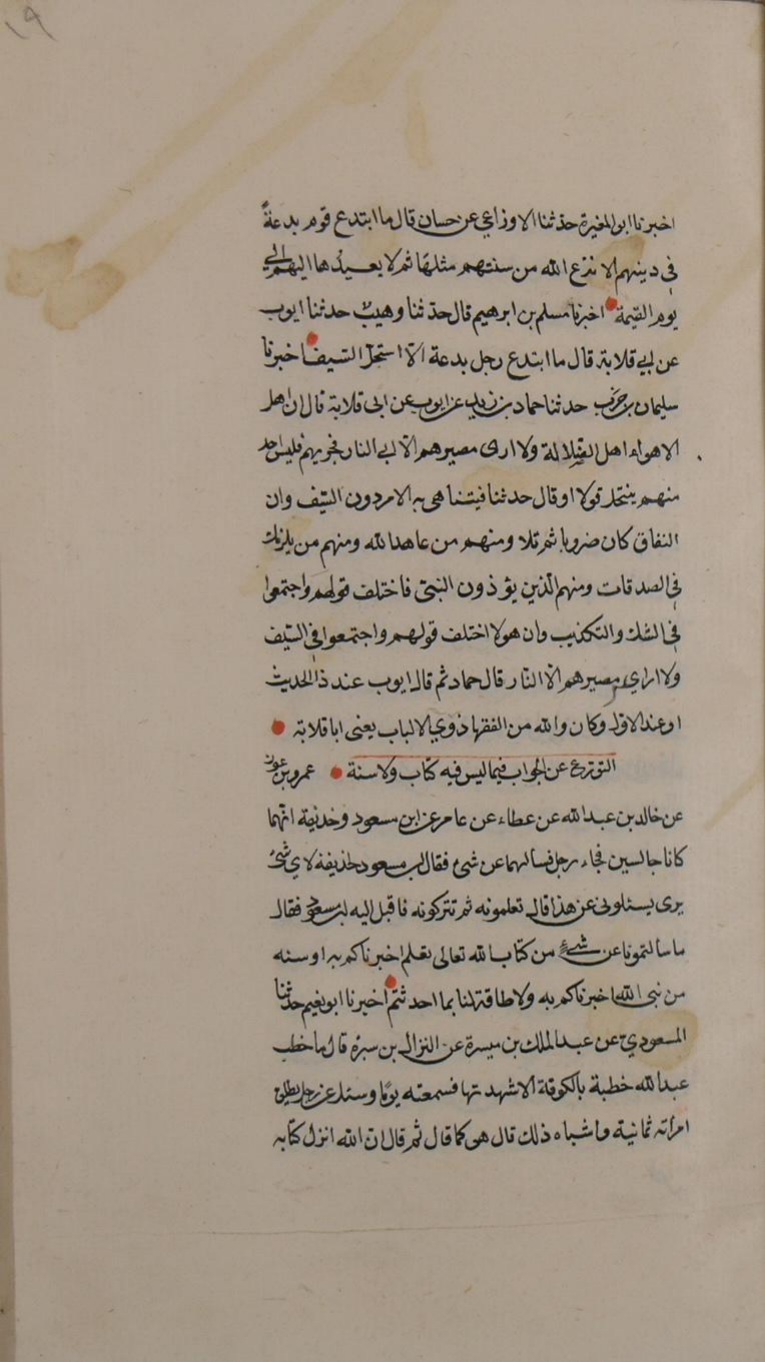 ١٩
اخبرنا ابو المغيرة حدثنا الاوزاعي عن حسان قال ما ابتدع قوم بدعةً
في دينهم الا نزع الله من سنتهم مثلها ثم لا يعيدها اليهم الي
يوم القيمة اخبرنا مسلم بن ابرهيم قال حدثنا وهيب حدثنا ايوب
عن ابي قلابة قال ما ابتدع رجل بدعة الا استحل السيف اخبرنا
سليمان بن حرب حدثنا حماد بن زيد عن ايوب عن ابى قلابة قال ان اهل
الاهواء اهل الضلالة ولا ارى مصيرهم الا الي النار فجربهم فليس احد
منهم ينتحل قولا او قال حدثنا فيتناهى به الامر دون السيف وان
النفاق كان ضروبا ثم تلا ومنهم من عاهد الله ومنهم من يلمزك
في الصدقات ومنهم الذين يؤذون النبي فاختلف قولهم واجتمعوا
في الشك والتكذيب وان هولا اختلف قولهم واجتمعوا في السيف
ولا اراي مصيرهم الا النار قال حماد ثم قال ايوب عند ذا الحديث
او عند الاول وكان والله من الفقها ذوي الالباب يعنى ابا قلابة
التورع عن الجواب فيما ليس فيه كتاب ولا سنة عمرو بن عون
عن خالد بن عبد الله عن عطاء عن عامر عن ابن مسعود وحذيفة انهما
كانا جالسين فجاء رجل فسالهما عن شئ فقال ابن مسعود لحذيفة لاي شئ
يرى يسئلونى عن هذا قال تعلمونه ثم تتركونه فاقبل اليه ابن مسعود فقال
ما سالتمونا عن شئ من كتاب الله تعالى نعلم اخبرناكم به او سنه
من نبى الله اخبرناكم به ولا طاقة لنا بما احدثتم اخبرنا ابو نعيم حدثنا
المسعودي عن عبد الملك بن ميسرة عن النزال بن سبرة قال ما خطب
عبد الله خطبة بالكوفة الا شهدتها فسمعته يومًا وسئل عن رجل يطلق
امراته ثمانية واشباه ذلك قال هى كما قال ثم قال ان الله انزل كتابه